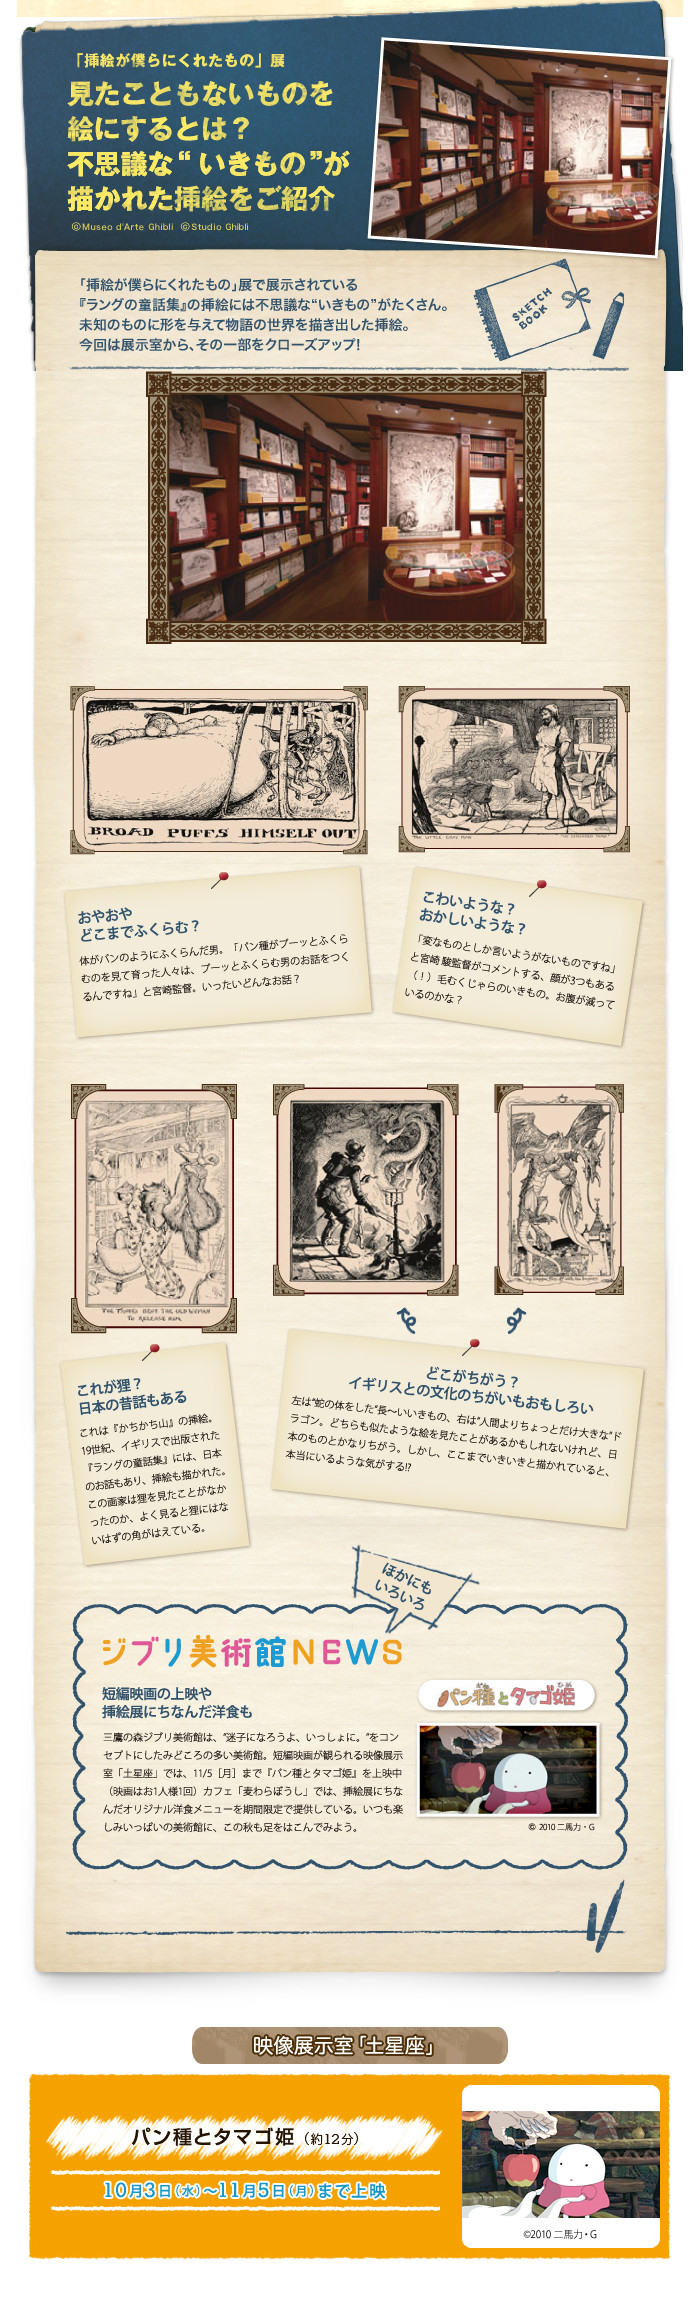 「挿絵が僕らにくれたもの」展
見たこともないものを
絵にするとは？
不思議な“いきもの”が
描かれた挿絵をご紹介
©Museo d'Arte Ghibli ©Studio Ghibli
「挿絵が僕らにくれたもの」展で展示されている
『ラングの童話集』の挿絵には不思議な“いきもの”がたくさん。
未知のものに形を与えて物語の世界を描き出した挿絵。
今回は展示室から、その一部をクローズアップ！
SKETCH
BOOK
BROAD PUFFS HIMSELF OUT
THE LITTLE GRAY MAN
おやおや
どこまでふくらむ？
体がパンのようにふくらんだ男。「パン種がプーッとふくら
むのを見て育った人々は、プーッとふくらむ男のお話をつく
るんですね」と宮崎監督。いったいどんなお話？
こわいような？
おかしいような？
「変なものとしか言いようがないものですね」
と宮崎 駿監督がコメントする、顔が3つもある
（！）毛むくじゃらのいきもの。お腹が減って
いるのかな？
THE TANUKI BEGS THE OLD WOMAN
TO RELEASE HIM
これが狸？
日本の昔話もある
これは『かちかち山』の挿絵。
19世紀、イギリスで出版された
『ラングの童話集』には、日本
のお話もあり、挿絵も描かれた。
この画家は狸を見たことがなか
ったのか、よく見ると狸にはな
いはずの角がはえている。
どこがちがう？
イギリスとの文化のちがいもおもしろい
左は“蛇の体をした”長〜いいきもの、右は“人間よりちょっとだけ大きな”ド
ラゴン。どちらも似たような絵を見たことがあるかもしれないけれど、日
本のものとかなりちがう。しかし、ここまでいきいきと描かれていると、
本当にいるような気がする!?
ほかにも
いろいろ
ジブリ美術館NEWS
短編映画の上映や
挿絵展にちなんだ洋食も
三鷹の森ジブリ美術館は、“迷子になろうよ、いっしょに。”をコン
セプトにしたみどころの多い美術館。短編映画が観られる映像展示
室「土星座」では、11/5［月］まで『パン種とタマゴ姫』を上映中
（映画はお1人様1回）カフェ「麦わらぼうし」では、挿絵展にちな
んだオリジナル洋食メニューを期間限定で提供している。いつも楽
しみいっぱいの美術館に、この秋も足をはこんでみよう。
パン種とタマゴ姫
© 2010 二馬力・G
映像展示室「土星座」
パン種とタマゴ姫（約12分）
10月3日（水）〜11月5日（月）まで上映
©2010 二馬力・G